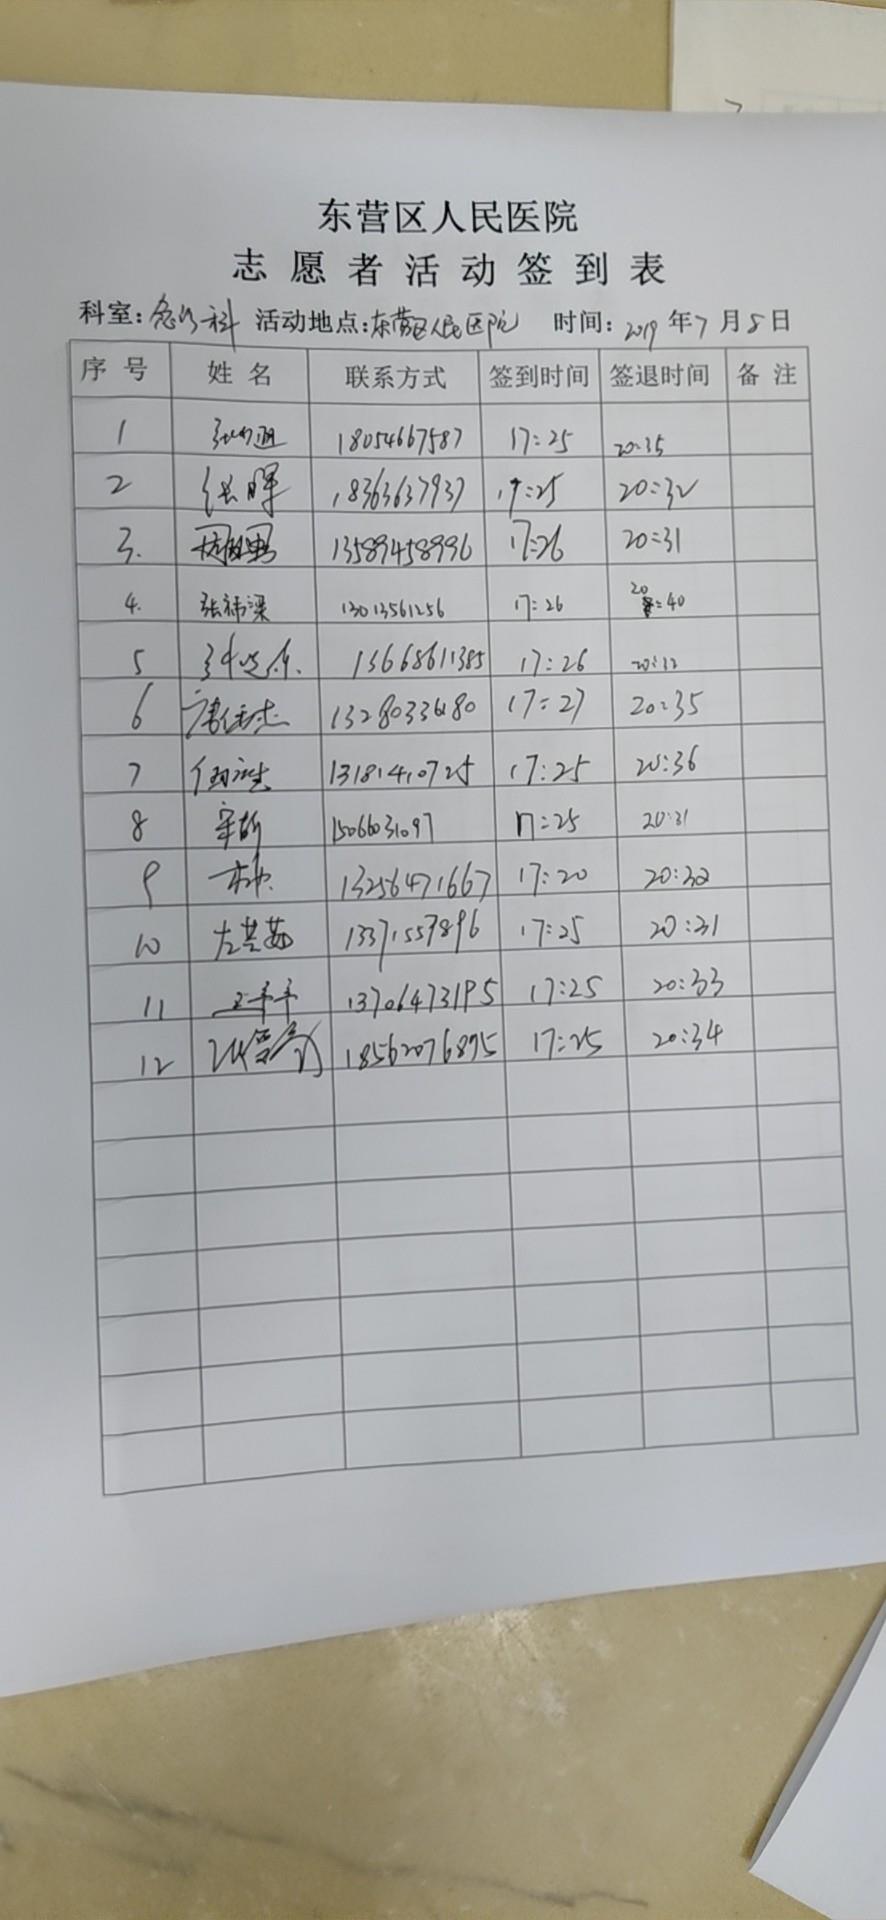 东营区人民医院
志愿者活动签到表
科室：急诊科 活动地点：东营区人民医院 时间：2019年7月8日
序号 姓名 联系方式 签到时间 签退时间 备注
1 18054667587 17:25 20:35
2 张晖 18363637937 17:25 20:32
3. 13589458996 17:26 20:31
4. 张祎梁 13013561256 17:26 20:40
5 13668611385 17:26 20:32
6 17:27 20:35
7 13181410725 17:25 20:36
8 15066031097 17:25 20:31
9 13256471667 17:20 20:32
10 左芸茹 13371557896 17:25 20:31
11 13706473195 17:25 20:33
12 18562076895 17:25 20:34